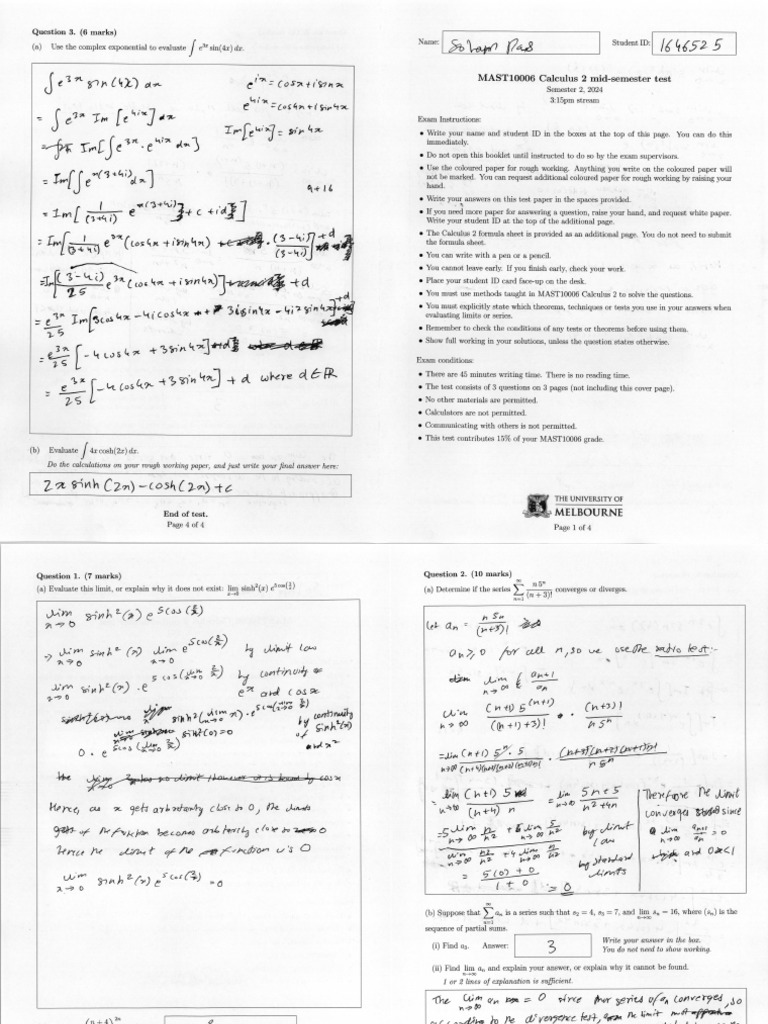 Question 3. (6 marks)
(a) Use the complex exponential to evaluate ∫ e^{3x} sin(4x) dx.
∫ e^{3x} sin(4x) dx
e^{ix} = cosx + i sinx
= ∫ e^{3x} Im [e^{4ix}] dx
e^{4ix} = cos4x + i sin4x
Im[e^{4ix}] = sin4x
= Im[∫ e^{3x} · e^{4ix} dx]
= Im[∫ e^{x(3+4i)} dx]
9+16
= Im[ 1/(3+4i) e^{x(3+4i)} + c + id ]
= Im[ 1/(3+4i) e^{3x} (cos4x + i sin4x) · (3-4i)/(3-4i) ] + d
= Im[ (3-4i)/25 e^{3x} (cos4x + i sin4x) ] + d
= e^{3x}/25 Im[3cos4x - 4i cos4x + 3i sin4x - 4i² sin4x] + d
= e^{3x}/25 [-4cos4x + 3sin4x] + d
= e^{3x}/25 [-4cos4x + 3sin4x] + d where d∈ℝ
(b) Evaluate ∫ 4x cosh(2x) dx.
Do the calculations on your rough working paper, and just write your final answer here:
2x sinh(2x) - cosh(2x) + c
End of test.
Page 4 of 4
Name: Soham Das Student ID: 1646525
MAST10006 Calculus 2 mid-semester test
Semester 2, 2024
3:15pm stream
Exam Instructions:
• Write your name and student ID in the boxes at the top of this page. You can do this
immediately.
• Do not open this booklet until instructed to do so by the exam supervisors.
• Use the coloured paper for rough working. Anything you write on the coloured paper will
not be marked. You can request additional coloured paper for rough working by raising your
hand.
• Write your answers on this test paper in the spaces provided.
• If you need more paper for answering a question, raise your hand, and request white paper.
Write your student ID at the top of the additional page.
• The Calculus 2 formula sheet is provided as an additional page. You do not need to submit
the formula sheet.
• You can write with a pen or a pencil.
• You cannot leave early. If you finish early, check your work.
• Place your student ID card face-up on the desk.
• You must use methods taught in MAST10006 Calculus 2 to solve the questions.
• You must explicitly state which theorems, techniques or tests you use in your answers when
evaluating limits or series.
• Remember to check the conditions of any tests or theorems before using them.
• Show full working in your solutions, unless the question states otherwise.
Exam conditions:
• There are 45 minutes writing time. There is no reading time.
• The test consists of 3 questions on 3 pages (not including this cover page).
• No other materials are permitted.
• Calculators are not permitted.
• Communicating with others is not permitted.
• This test contributes 15% of your MAST10006 grade.
THE UNIVERSITY OF
MELBOURNE
Page 1 of 4
Question 1. (7 marks)
(a) Evaluate this limit, or explain why it does not exist: lim x→0 sinh²(x) e^{5cos(2/x)}
lim x→0 sinh²(x) e^{5cos(2/x)}
⇒ lim x→0 sinh²(x) lim x→0 e^{5cos(2/x)} by limit law
lim x→0 sinh²(x) · e^{5cos(lim x→0 2/x)} by continuity of
e^x and cosx
sinh²(lim x→0 x) · e^{5cos(lim x→0 2/x)} by continuity
sinh²(0)=0 of sinh²(x)
0 · e^{5cos(lim x→0 2/x)} and x²
Hence, as x gets arbitrarily close to 0, the
of the function becomes arbitrarily close to 0
Hence the limit of the function is 0
lim x→0 sinh²(x) e^{5cos(2/x)} = 0
(n+4)^{2n}
Question 2. (10 marks)
(a) Determine if the series ∑_{n=1}^{∞} n5^n/(n+3)! converges or diverges.
Let a_n = n5^n/(n+3)!
a_n ≥ 0 for all n, so we use the ratio test:
lim n→∞ a_{n+1}/a_n
lim n→∞ (n+1)5^{(n+1)}/((n+1)+3)! · (n+3)!/n5^n
= lim n→∞ (n+1)5^n · 5
= lim n→∞ (n+1)5/(n+4)n = lim n→∞ 5n+5/n²+4n
Therefore the limit
converges since
lim n→∞ a_{n+1}/a_n = 0
and 0<1
= 5 lim n→∞ n/n² + 5 lim n→∞ 1/n² by limit
law
lim n→∞ n²/n² + 4 lim n→∞ n/n² by standard
limits
= 5(0)+0/1+0 = 0
(b) Suppose that ∑_{n=1}^{∞} a_n is a series such that s₂ = 4, s₃ = 7, and lim n→∞ s_n = 16, where (s_n) is the
sequence of partial sums.
(i) Find a₃. Answer: 3 Write your answer in the box.
You do not need to show working.
(ii) Find lim n→∞ a_n and explain your answer, or explain why it cannot be found.
1 or 2 lines of explanation is sufficient.
The lim a_n = 0 since the series of a_n converges, so
according to the divergence test, the limit must